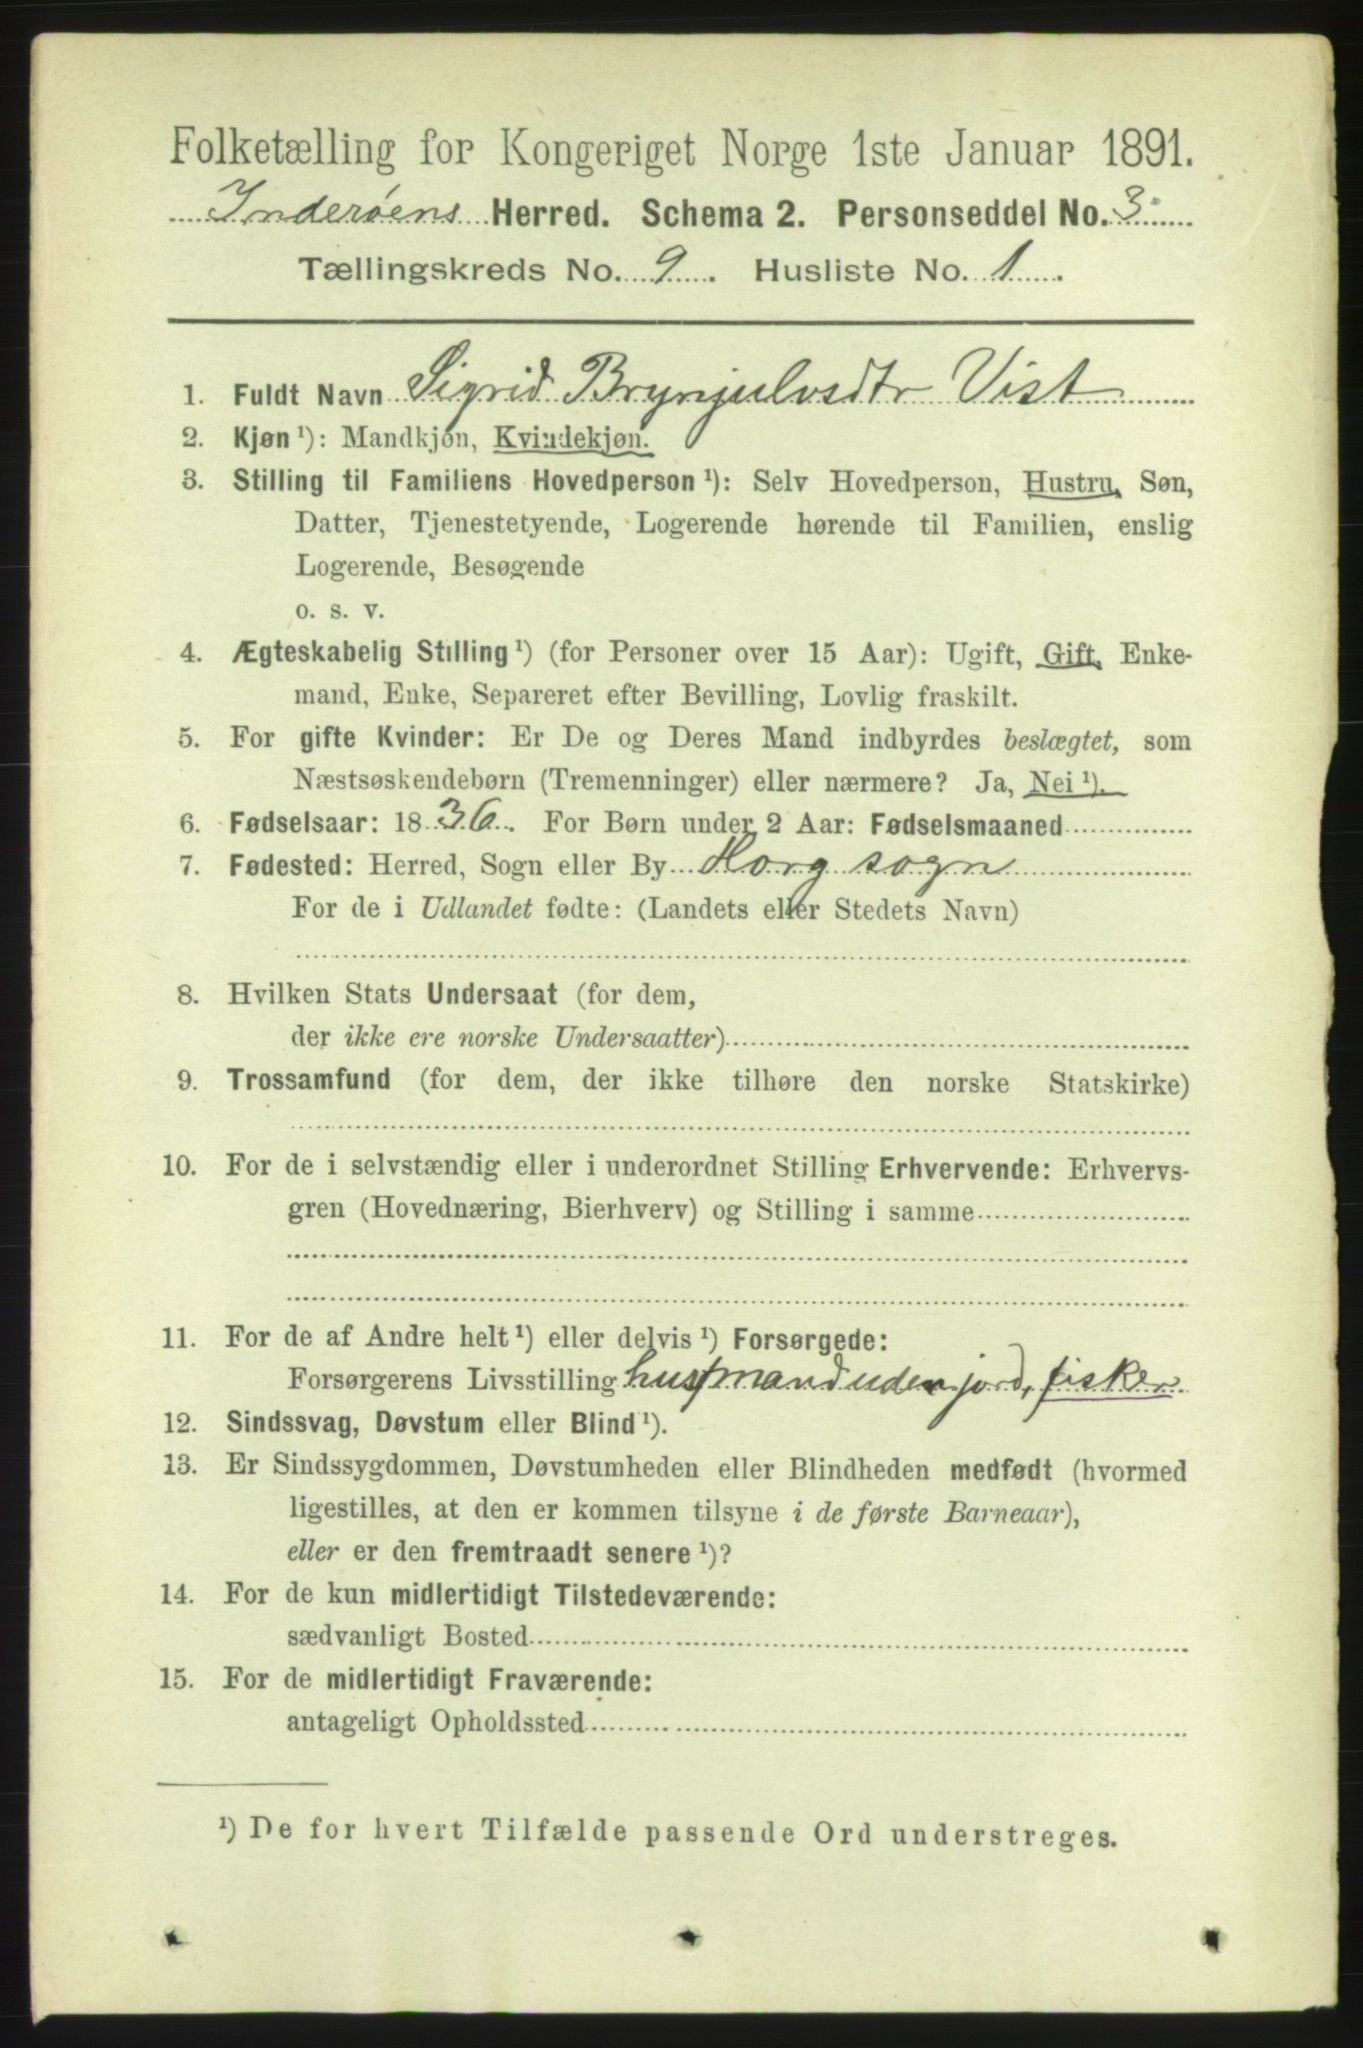 Folketælling for Kongeriget Norge 1ste Januar 1891.
Inderøens Herred. Schema 2. Personseddel No. 3
Tællingskreds No. 9. Husliste No. 1.
1. Fuldt Navn Sigrid Brynjulvsdtr Vist
2. Kjøn ¹): Mandkjøn, Kvindekjøn.
3. Stilling til Familiens Hovedperson ¹): Selv Hovedperson, Hustru, Søn,
Datter, Tjenestetyende, Logerende hørende til Familien, enslig
Logerende, Besøgende
o. s. v.
4. Ægteskabelig Stilling ¹) (for Personer over 15 Aar): Ugift, Gift, Enke-
mand, Enke, Separeret efter Bevilling, Lovlig fraskilt.
5. For gifte Kvinder: Er De og Deres Mand indbyrdes beslægtet, som
Næstsøskendebørn (Tremenninger) eller nærmere? Ja, Nei ¹).
6. Fødselsaar: 1836. For Børn under 2 Aar: Fødselsmaaned
7. Fødested: Herred, Sogn eller By Horg sogn
For de i Udlandet fødte: (Landets eller Stedets Navn)
8. Hvilken Stats Undersaat (for dem,
der ikke ere norske Undersaatter)
9. Trossamfund (for dem, der ikke tilhøre den norske Statskirke)
10. For de i selvstændig eller i underordnet Stilling Erhvervende: Erhvervs-
gren (Hovednæring, Bierhverv) og Stilling i samme
11. For de af Andre helt ¹) eller delvis ¹) Forsørgede:
Forsørgerens Livsstilling husmand uden jord, fisker
12. Sindssvag, Døvstum eller Blind ¹).
13. Er Sindssygdommen, Døvstumheden eller Blindheden medfødt (hvormed
ligestilles, at den er kommen tilsyne i de første Barneaar),
eller er den fremtraadt senere ¹)?
14. For de kun midlertidigt Tilstedeværende:
sædvanligt Bosted
15. For de midlertidigt Fraværende:
antageligt Opholdssted
¹) De for hvert Tilfælde passende Ord understreges.